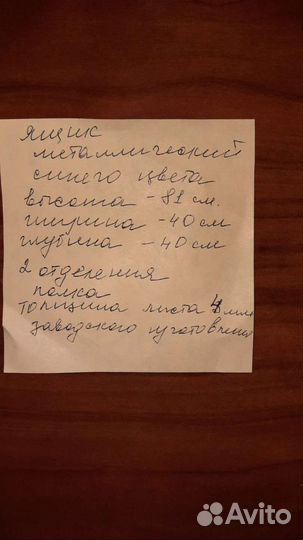 Ящик
металлический
синего цвета
высота - 81 см.
ширина - 40 см
глубина - 40 см
2 отделения
полка
толщина листа 4 мм
заводского изготовления
Avito